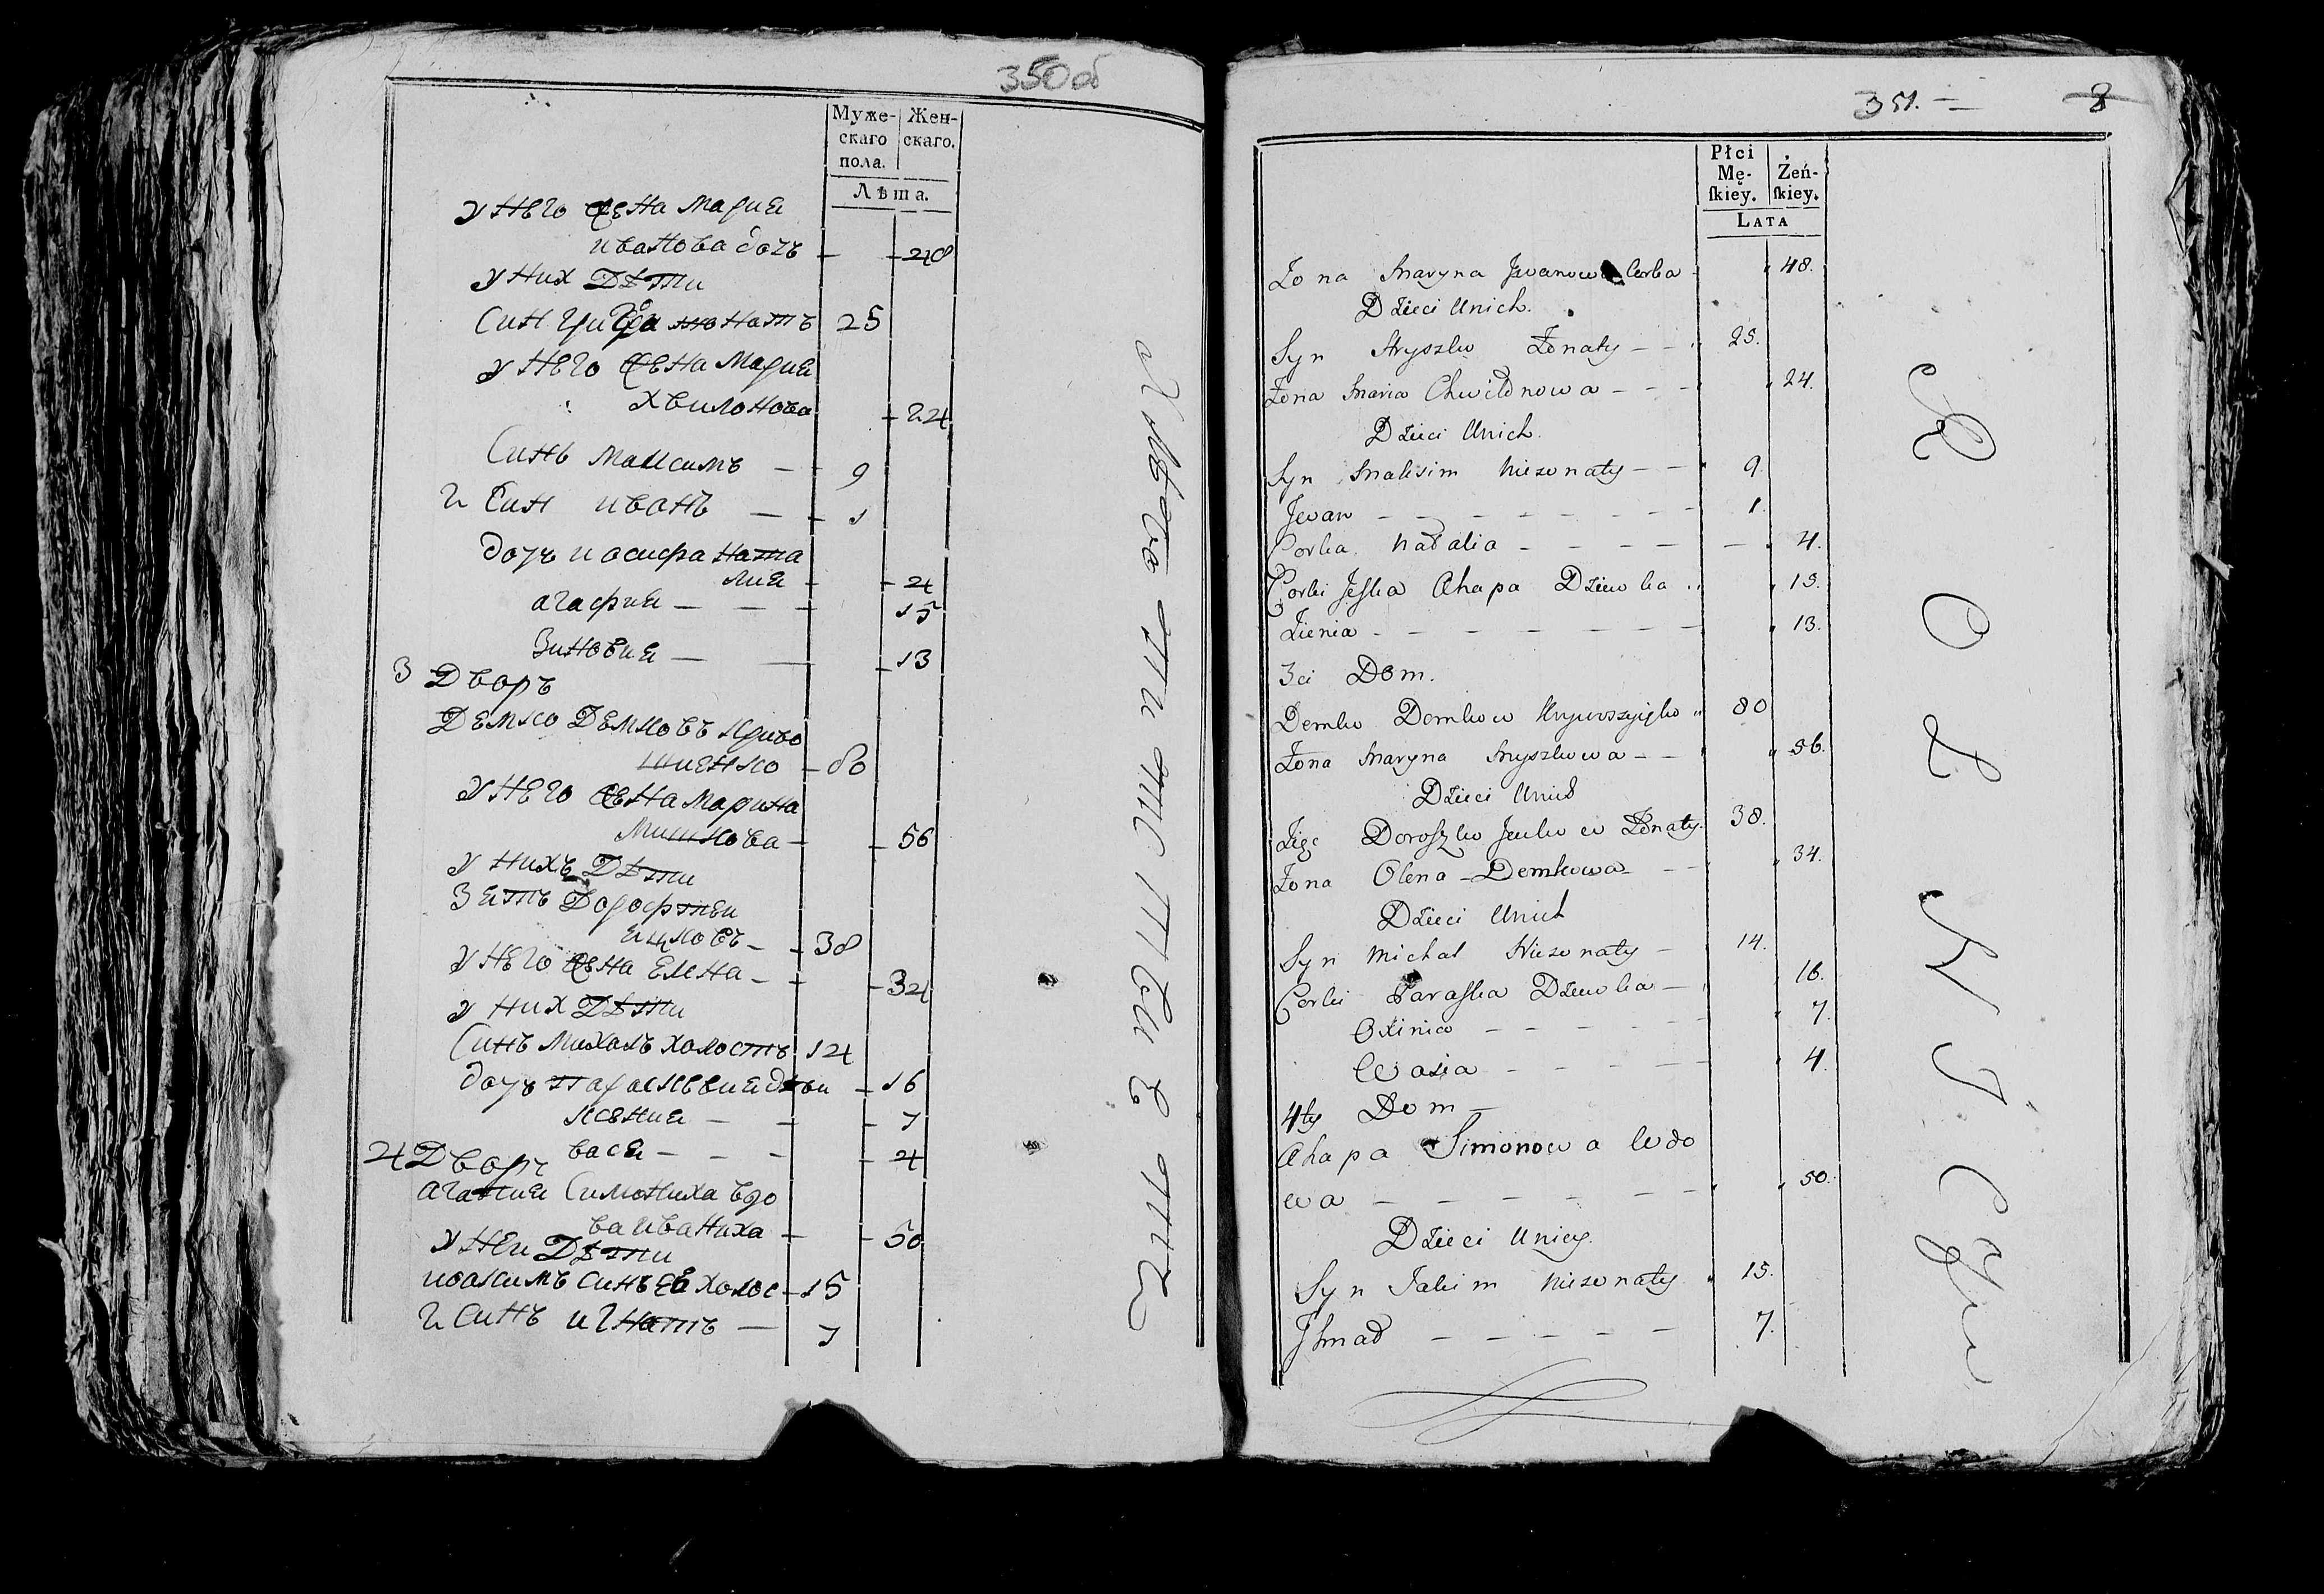 350 об
Муже-
скаго
пола.
Жен-
скаго.
Лѣта.
у него жена Мария
иванова дочъ - - 48
у них Дѣти
Син Григори жонатъ 25
у него жена Мария
Хвилонова - 24
Синъ максимъ - - 9
и Син иванъ - - 1
дочъ иосифа ната
лия - - 4
агафия - - - 15
Зиновия - - 13
3 Дворъ
Демко Демковъ криво
шиенко - 80
у него жена марина
Мишкова - - 56
у нихъ Дѣти
Зятъ Дорофтеи
яцковъ - - 38
у него жена Елена - - - 34
у них Дѣти
Синъ михалъ холостъ 14
дочъ параскивия - 16
ксения - - - 7
вася - - - - 4
4 Дворъ
агапия Симониха вдо
ва иваниха - - 50
у неи Дѣти
иоакимъ синъ ее холос - 15
и синъ игнатъ - 7
351. 8
Płci
Mę-
ſkiey.
Żeń-
ſkiey.
LATA
Żona Maryna Jwanowa Corka 48.
Dzieci Unich.
Syn Hryszko Żonaty - - 25.
Żona Maria Chwilonowa - - - 24.
Dzieci Unich.
Syn Maksim Niezonaty - - 9.
Jwan - - - - - - - - 1
Corka Natalia - - - - - 4.
Corki Jeſka Ahapa Dziewka 15.
Zienia - - - - - - - 13.
3ci Dom.
Demko Demkow Krywoszyiętko 80
Żona Maryna Myszkowa - - 56.
Dzieci Unich
Zięć Doroſzko Jackow Żonaty. 38.
Żona Olena Demkowa - - 34.
Dzieci Unich
Syn Michał Niezonaty - 14.
Corki Paraſka Dziewka - 16.
Oxinia - - - - - 7.
Wasia - - - - - 4.
4ty Dom -
Ahapa Simonowa Wdo
wa - - - - - - 50.
Dzieci Uniey.
Syn Jakim Niezonaty 15.
Jhnad - - - - - 7.